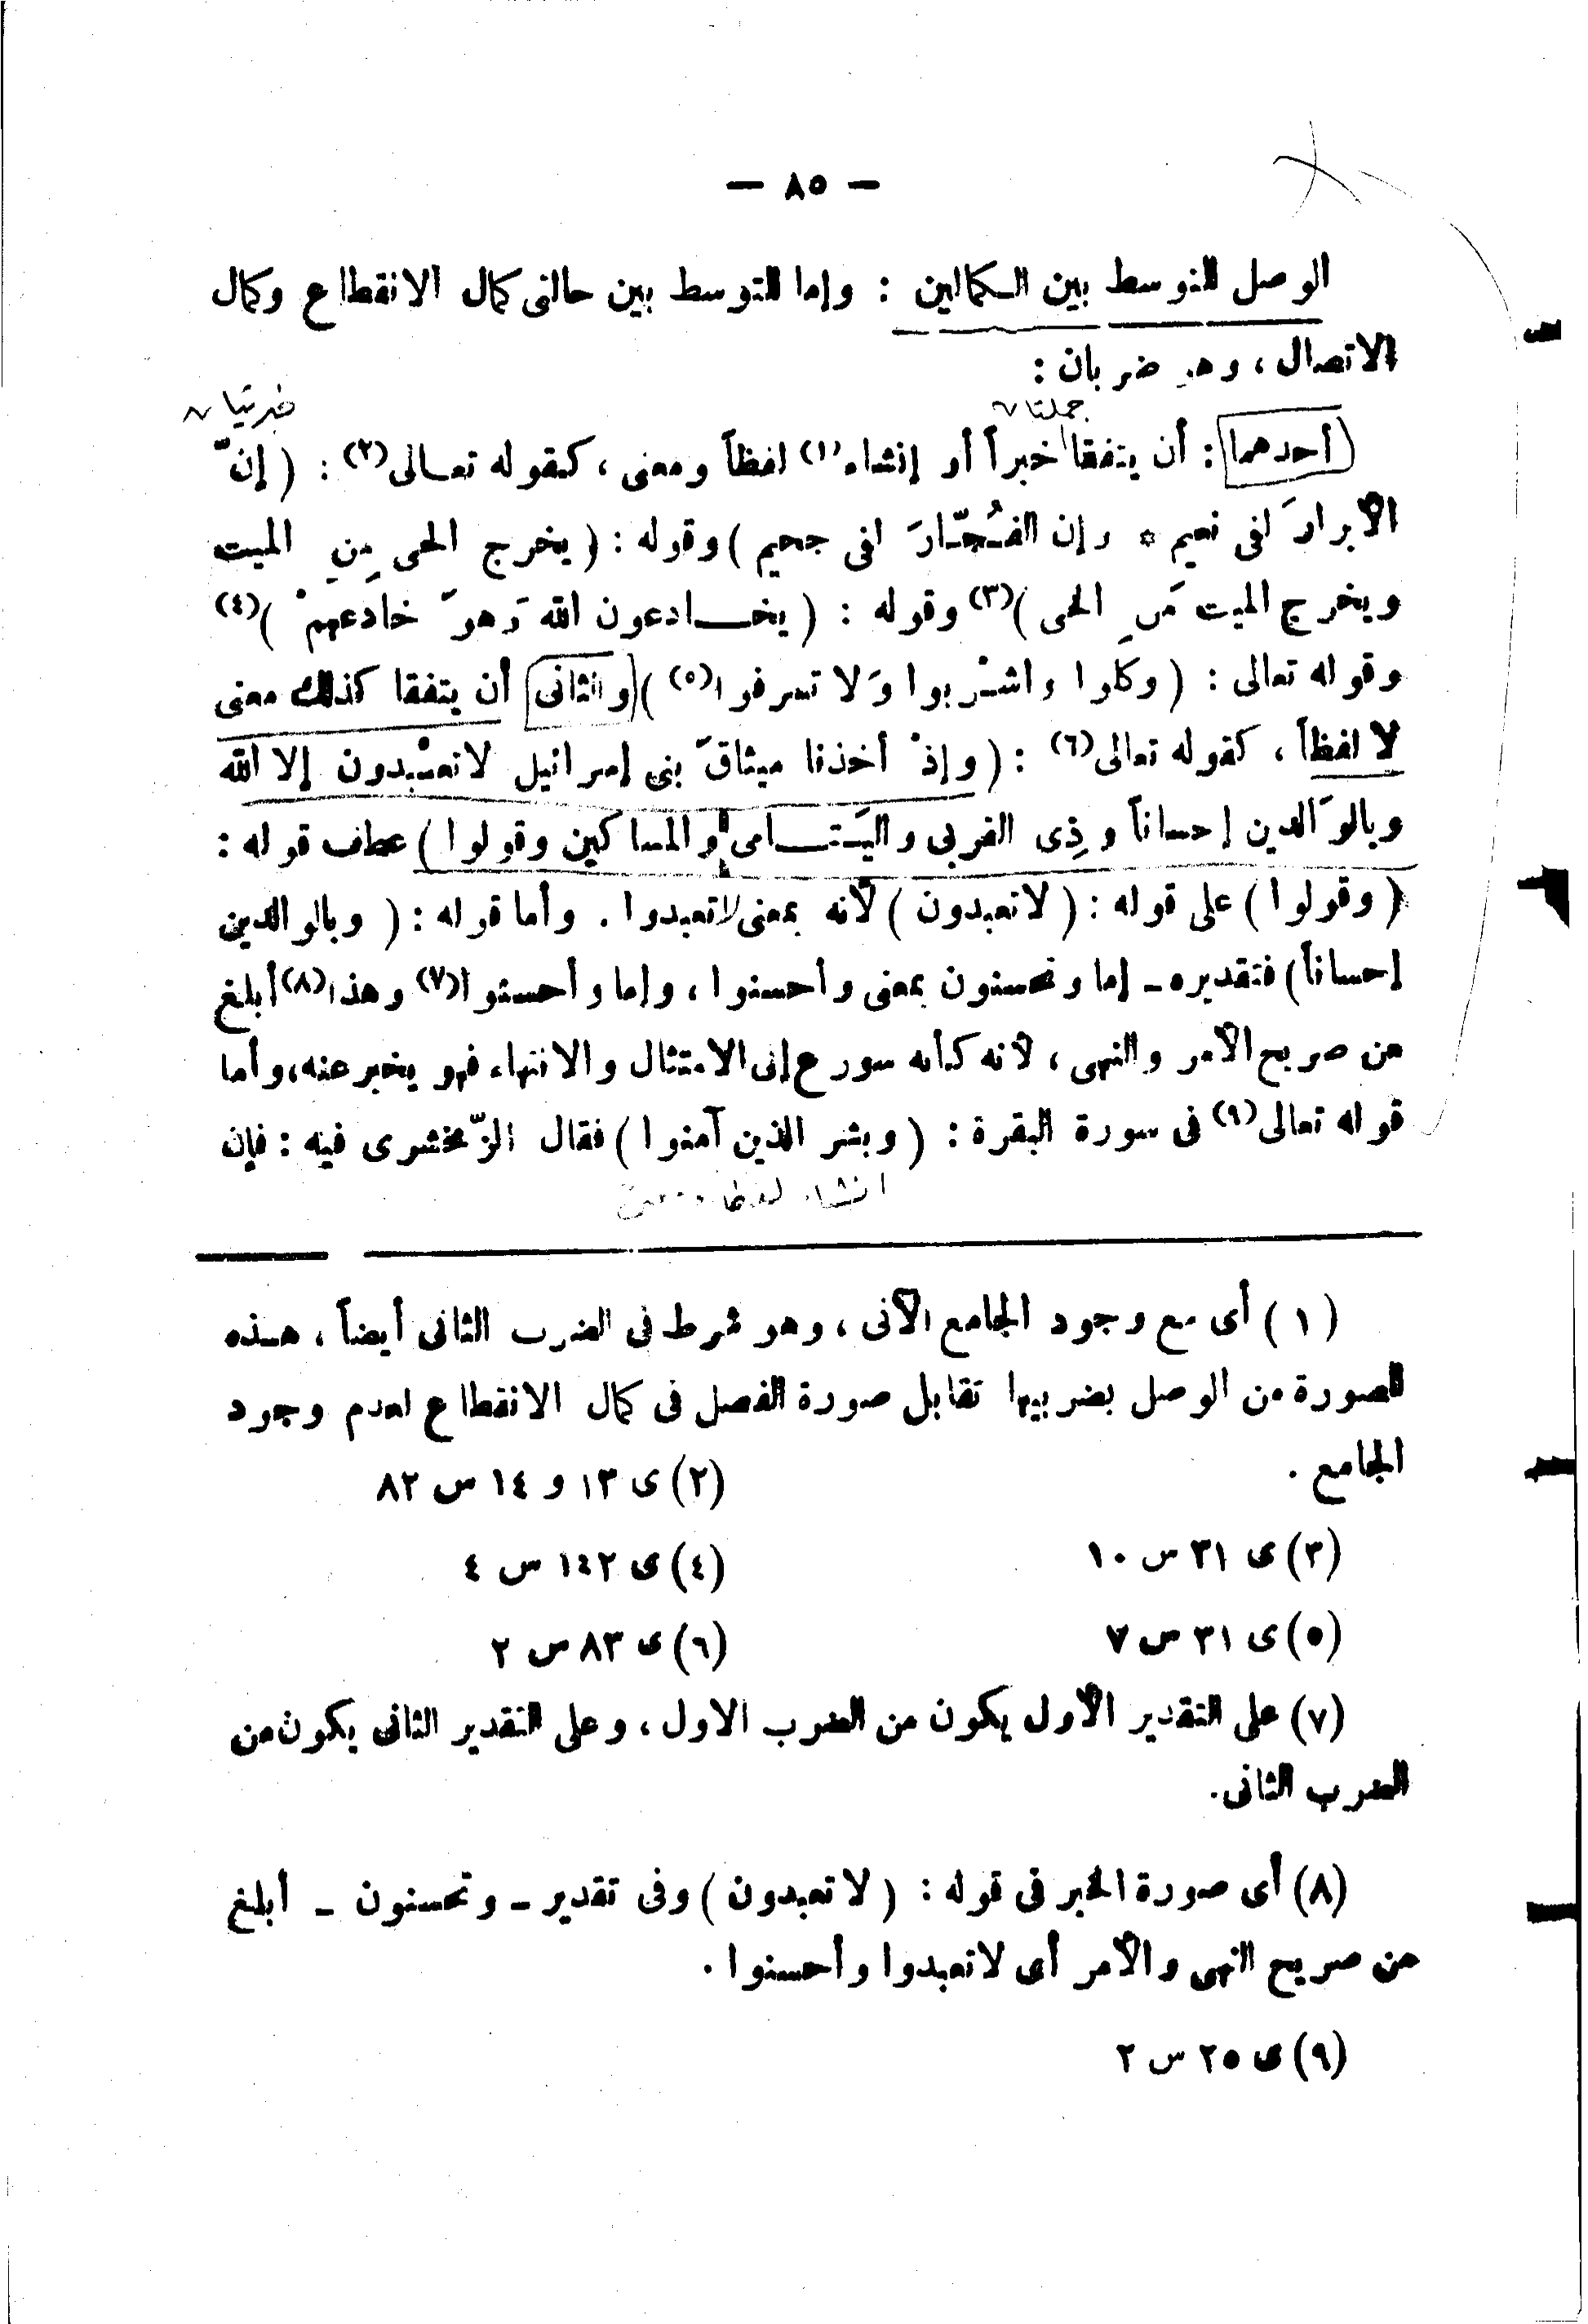 — ٨٥ —
الوصل للتوسط بين الكمالين : وإما للتوسط بين حالتى كمال الانقطاع وكمال
الاتصال ، وهو ضربان :
جملتان خبريتان
أحدهما : أن يتفقا خبراً أو إنشاء(١) لفظاً ومعنى ، كقوله تعالى(٢) : ( إنّ
الأبرارَ لفى نعيم * وإن الفُجّارَ لفى جحيم ) وقوله : ( يخرج الحى مِن الميت
ويخرج الميت مَن الحى )(٣) وقوله : ( يخادعون الله وَهوَ خادعهمْ )(٤)
وقوله تعالى : ( وكلوا واشْربوا وَلا تسرفوا(٥) ) والثانى أن يتفقا كذلك معنى
لا لفظاً ، كقوله تعالى(٦) : ( وإذْ أخذنا ميثاقَ بنى إسرائيل لا تعبْدون إلا الله
وبالوَالدين إحساناً وذِى القربى واليَتامى والمساكين وقولوا ) عطف قوله :
( وقولوا ) على قوله : ( لا تعبدون ) لأنه بمعنى لا تعبدوا . وأما قوله : ( وبالوالدين
إحساناً ) فتقديره ـ إما وتحسنون بمعنى وأحسنوا ، وإما وأحسنوا(٧) وهذا(٨) أبلغ
من صريح الأمر والنهى ، لأنه كأنه سورع إلى الامتثال والانتهاء فهو يخبر عنه، وأما
قوله تعالى(٩) فى سورة البقرة : ( وبشر الذين آمنوا ) فقال الزّمخشرى فيه : فإن
انشاء لفظا ومعنى
( ١ ) أى مع وجود الجامع الآتى ، وهو شرط فى الضرب الثانى أيضاً ، هذه
الصورة من الوصل بضربيها تقابل صورة الفصل فى كمال الانقطاع لعدم وجود
الجامع .
(٢) ى ١٣ و ١٤ س ٨٢
(٣) ى ٣١ س ١٠
(٤) ى ١٤٢ س ٤
(٥) ى ٣١ س ٧
(٦) ى ٨٣ س ٢
(٧) على التقدير الأول يكون من الضرب الاول ، وعلى التقدير الثانى يكون من
الضرب الثانى.
(٨) أى صورة الخبر فى قوله : ( لا تعبدون ) وفى تقدير ـ وتحسنون ـ أبلغ
من صريح النهى والأمر أى لا تعبدوا وأحسنوا .
(٩) ى ٢٥ س ٢